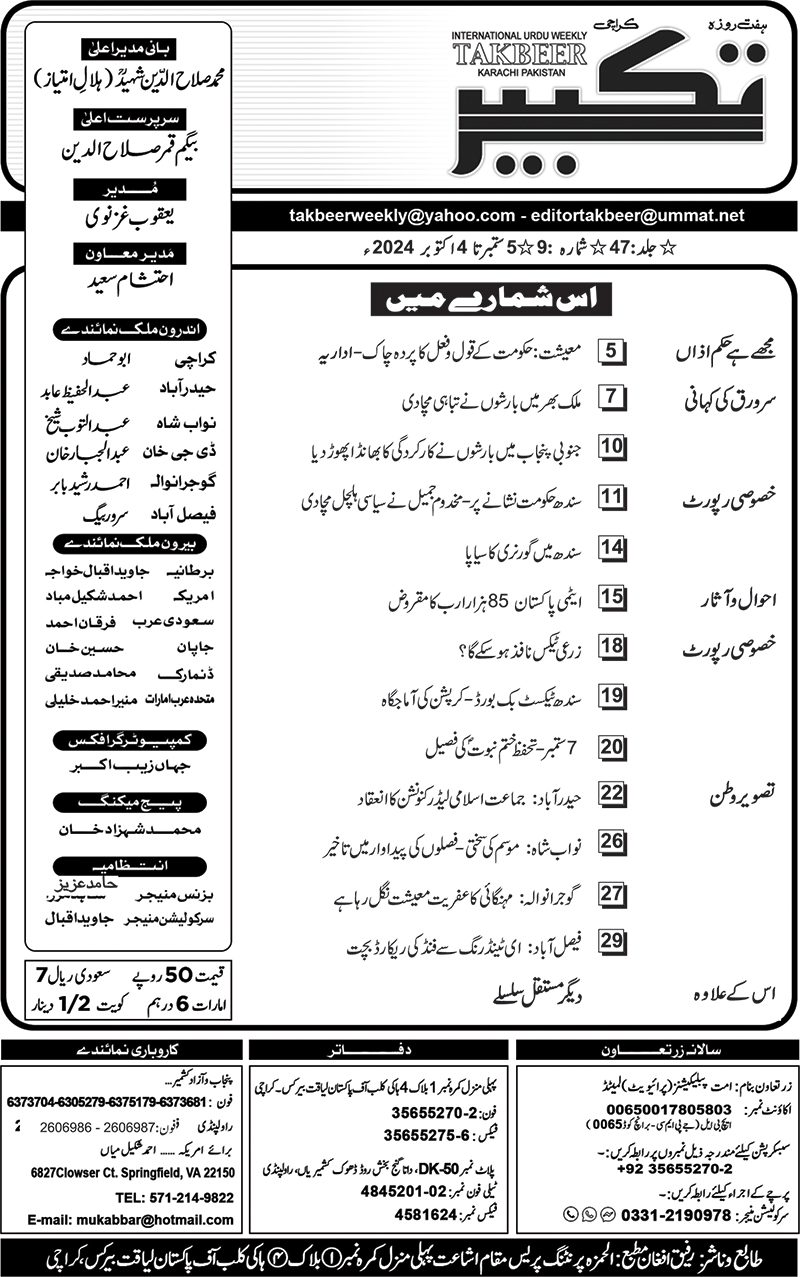 ہفت روزہ
کراچی
INTERNATIONAL URDU WEEKLY
TAKBEER
KARACHI PAKISTAN
تکبیر
takbeerweekly@yahoo.com - editortakbeer@ummat.net
☆ جلد: 47 ☆ شمارہ :9 ☆ 5 ستمبر تا 4 اکتوبر 2024ء
بانی مدیر اعلیٰ
محمد صلاح الدین شہیدؒ (ہلال امتیاز)
سرپرست اعلیٰ
بیگم قمر صلاح الدین
مُدیر
یعقوب غزنوی
مَدیر معاون
احتشام سعید
اندرون ملک نمائندے
کراچی ابو حماد
حیدرآباد عبدالحفیظ عابد
نواب شاہ عبدالتوب شیخ
ڈی جی خان عبدالجبار خان
گوجرانوالہ احمد رشید بابر
فیصل آباد سرور بیگ
بیرون ملک نمائندے
برطانیہ جاوید اقبال خواجہ
امریکہ احمد شکیل میاں
سعودی عرب فرقان احمد
جاپان حسین خان
ڈنمارک محامد صدیقی
متحدہ عرب امارات منیر احمد خلیلی
کمپیوٹر گرافکس
جہاں زیب اکبر
پیج میکنگ
محمد شہزاد خان
انتظامیہ
بزنس منیجر حامد عزیز
سرکولیشن منیجر جاوید اقبال
قیمت 50 روپے سعودی ریال 7
امارات 6 درہم کویت 1/2 دینار
اس شمارے میں
مجھے ہے حکم اذاں 5 معیشت: حکومت کے قول و فعل کا پردہ چاک - اداریہ
سرورق کی کہانی 7 ملک بھر میں بارشوں نے تباہی مچا دی
10 جنوبی پنجاب میں بارشوں نے کارکردگی کا بھانڈا پھوڑ دیا
خصوصی رپورٹ 11 سندھ حکومت نشانے پر - مخدوم جمیل نے سیاسی ہلچل مچا دی
14 سندھ میں گورنری کا سیاپا
احوال و آثار 15 ایٹمی پاکستان 85 ہزار ارب کا مقروض
خصوصی رپورٹ 18 زرعی ٹیکس نافذ ہو سکے گا؟
19 سندھ ٹیکسٹ بک بورڈ - کرپشن کی آماجگاہ
20 7 ستمبر - تحفظ ختم نبوتؐ کی فصیل
تصویر وطن 22 حیدرآباد: جماعت اسلامی لیڈر کنونشن کا انعقاد
26 نواب شاہ: موسم کی سختی - فصلوں کی پیداوار میں تاخیر
27 گوجرانوالہ: مہنگائی کا عفریت معیشت نگل رہا ہے
29 فیصل آباد: ای ٹینڈرنگ سے فنڈ کی ریکارڈ بچت
اس کے علاوہ دیگر مستقل سلسلے
سالانہ زر تعاون
زر تعاون بنام: امت پبلیکیشنز (پرائیویٹ) لمیٹڈ
اکاؤنٹ نمبر: 00650017805803
ایچ بی ایل (جے پی ایم سی - برانچ کوڈ 0065)
سبسکرپشن کیلئے مندرجہ ذیل نمبروں پر رابطہ کریں:-
+92 35655270-2
پرچے کے اجراء کیلئے رابطہ کریں:-
سرکولیشن منیجر: 0331-2190978
دفاتر
پہلی منزل کمرہ نمبر 1 بلاک 4 ہاکی کلب آف پاکستان لیاقت بیرکس۔ کراچی
فون: 35655270-2
فیکس: 35655275-6
پلاٹ نمبر DK-50، داتا گنج بخش روڈ ڈھوک کشمیریاں، راولپنڈی
ٹیلی فون نمبر: 4845201-02
فیکس نمبر: 4581624
کاروباری نمائندے
پنجاب و آزاد کشمیر...
فون: 6373704-6305279-6375179-6373681
راولپنڈی فون: 2606987 - 2606986
برائے امریکہ ...... احمد شکیل میاں
6827Clowser Ct. Springfield, VA 22150
TEL: 571-214-9822
E-mail: mukabbar@hotmail.com
طابع و ناشر: رفیق افغان مطبع: الحمزہ پرنٹنگ پریس مقام اشاعت پہلی منزل کمرہ نمبر ۱ بلاک ۴ ہاکی کلب آف پاکستان لیاقت بیرکس، کراچی